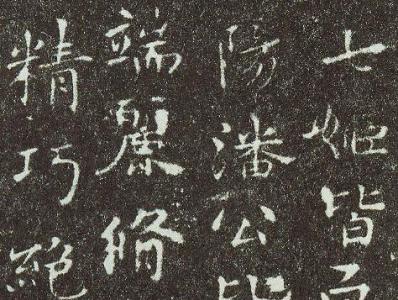 七姬皆
陽潘公
端麗脩
精巧絕